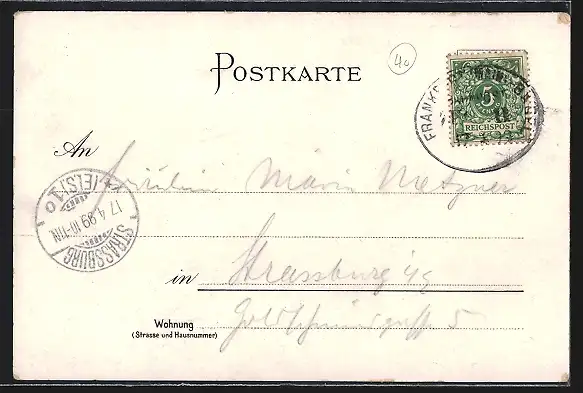 40
POSTKARTE
5
REICHSPOST
FRANKF
An Fräulein Marie Metzner
STRASSBURG (ELS) 10
17.4.99.10-11N.
in Strassburg i/g
Wohnung Goldschmiedgasse 5
(Strasse und Hausnummer)